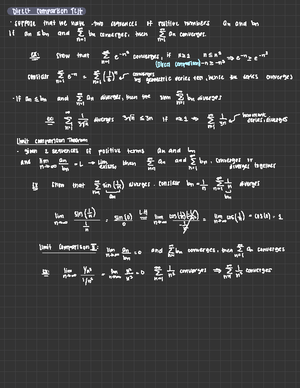 Direct Comparison Test
• Suppose that we have two sequences of positive numbers an and bn
if an ≤ bn and ∞Σn=1 bn converges, then ∞Σn=1 an converges.
ex: Show that ∞Σn=1 e^-n² converges, if n≥1 n ≤ n² ⇒ e^-n ≥ e^-n²
(Direct comparison) -n ≥ -n²
consider ∞Σn=1 e^-n = ∞Σn=1 (1/e)^n converges by geometric series test, hence the series converges
• If an ≤ bn and ∞Σn=1 an diverges, then the sum ∞Σn=1 bn diverges
ex: ∞Σn=1 1/3√n diverges 3√n ≤ 3n if n≥1 ∞Σn=1 1/3n harmonic series, diverges
Limit Comparison Theorem
• Given 2 sequences of positive terms an and bn
and lim n→∞ an/bn = L → Limit exists then ∞Σn=1 an and ∞Σn=1 bn, converges or diverges together
ex Show that ∞Σn=1 sin(1/n) diverges. consider bn = 1/n ∞Σn=1 1/n diverges
lim n→∞ sin(1/n) / 1/n = sin(0)/0 L'H = lim n→∞ = lim n→∞ cos(1/n) = cos(0) = 1
Limit Comparison II: lim n→∞ an/bn = 0 and ∞Σn=1 bn converges, then ∞Σn=1 an converges
ex: lim n→∞ 1/n³ / 1/n² = lim n→∞ n²/n³ = 0 ∞Σn=1 1/n² converges ⇒ ∞Σn=1 1/n³ converges